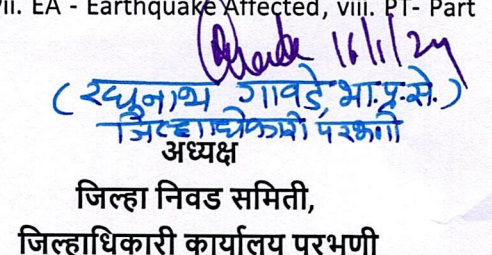 ii. EA - Earthquake Affected, viii. PT- Part
16/1/24
(रघुनाथ गावडे, भा.प्र.से.)
जिल्हाधिकारी परभणी
अध्यक्ष
जिल्हा निवड समिती,
जिल्हाधिकारी कार्यालय परभणी